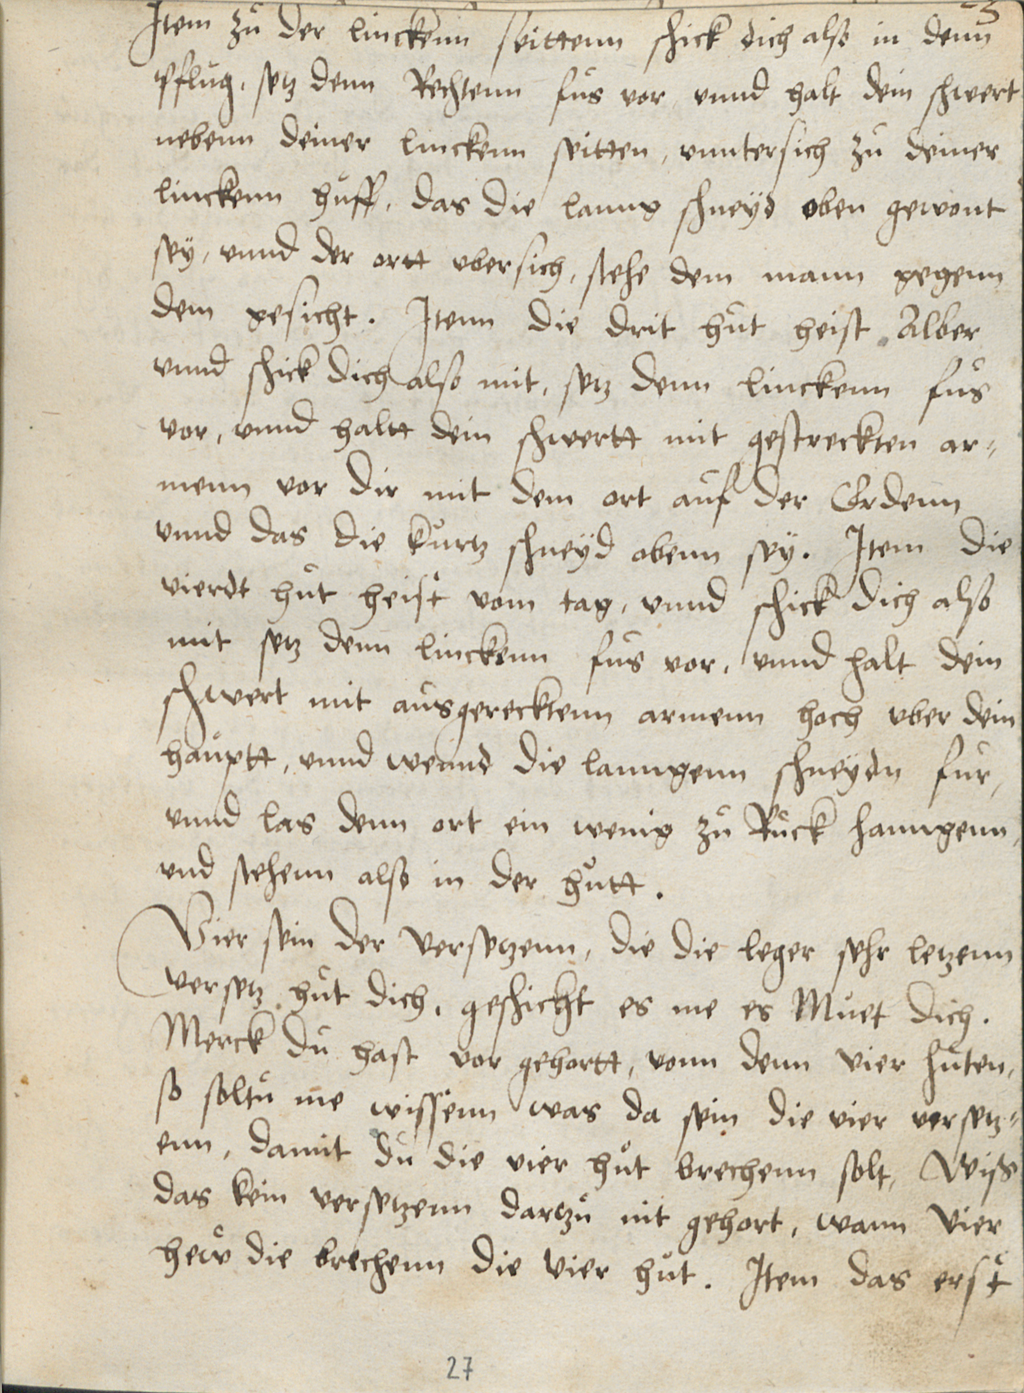 Item zů der linckenn seittenn schick dich also in denn
Pflůg, setz denn Rechtenn fůs vor vnnd halt dein schwert
nebenn deiner linckenn seitten, vnntersich zů deiner
linckenn hůff, das die lanng schneÿd oben gewont
seÿ, vnnd der ortt vbersich, stehe dem mann gegenn
dem gesicht. Itenn die drit hůt heist Alber
vnnd schick dich also mit, setz denn linckenn fůs
vor, vnnd haltt dein schwertt mit gestreckten ar-
menn vor dir mit dem ort aůf der Erdenn
vnnd das die kůrtz schneÿd obenn seÿ. Item die
vierdt hůt heist vom tag, vnnd schick dich also
mit setz denn linckenn fůs vor, vnnd halt dein
schwert mit aůsgerecktenn armenn hoch vber dein
haůptt, vnnd wennd die lanngenn schneÿdn fůr,
vnnd las denn ort ein wenig zů Růck hanngenn,
vnd stehenn also in der hůtt.
Vier sein der versetzenn, die die leger sehr letzenn
versetz hůt dich, geschicht es me es Můet dich.
Merck dů hast vor gehortt, vonn denn vier hůten,
so soltů me wissenn was da sein die vier versetz-
enn, damit dů die vier hůt brechenn solt, Wiss
das kein versetzenn dartzů nit gehort, wann vier
hew die brechenn die vier hůt. Item das erst
27